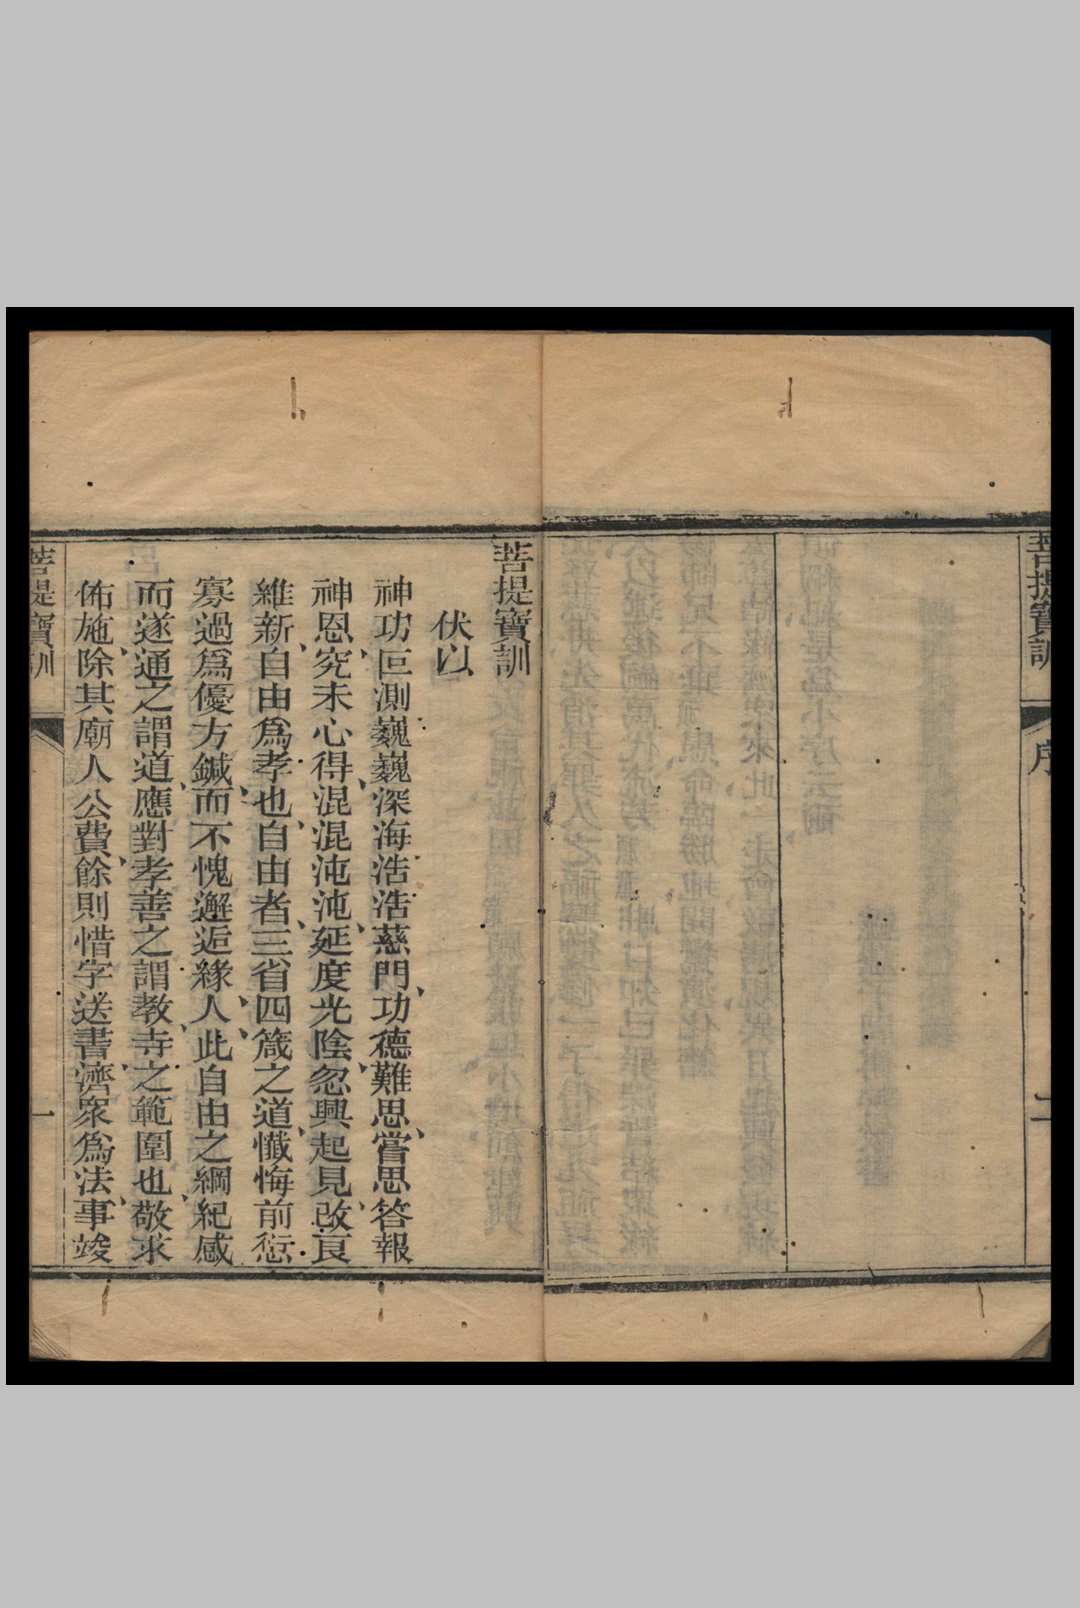 菩提寶訓
序
二
菩提寶訓
伏以
神功叵測巍巍深海浩浩慈門功德難思嘗思答報
神恩究未心得混混沌沌延度光陰忽興起見改良
維新自由爲孝也自由者三省四箴之道懺悔前愆
寡過爲優方鍼而不愧邂逅緣人此自由之綱紀感
而遂通之謂道應對孝善之謂教寺之範圍也敬求
佑施除其廟人公費餘則惜字送書濟眾爲法事竣
菩提寶訓
一